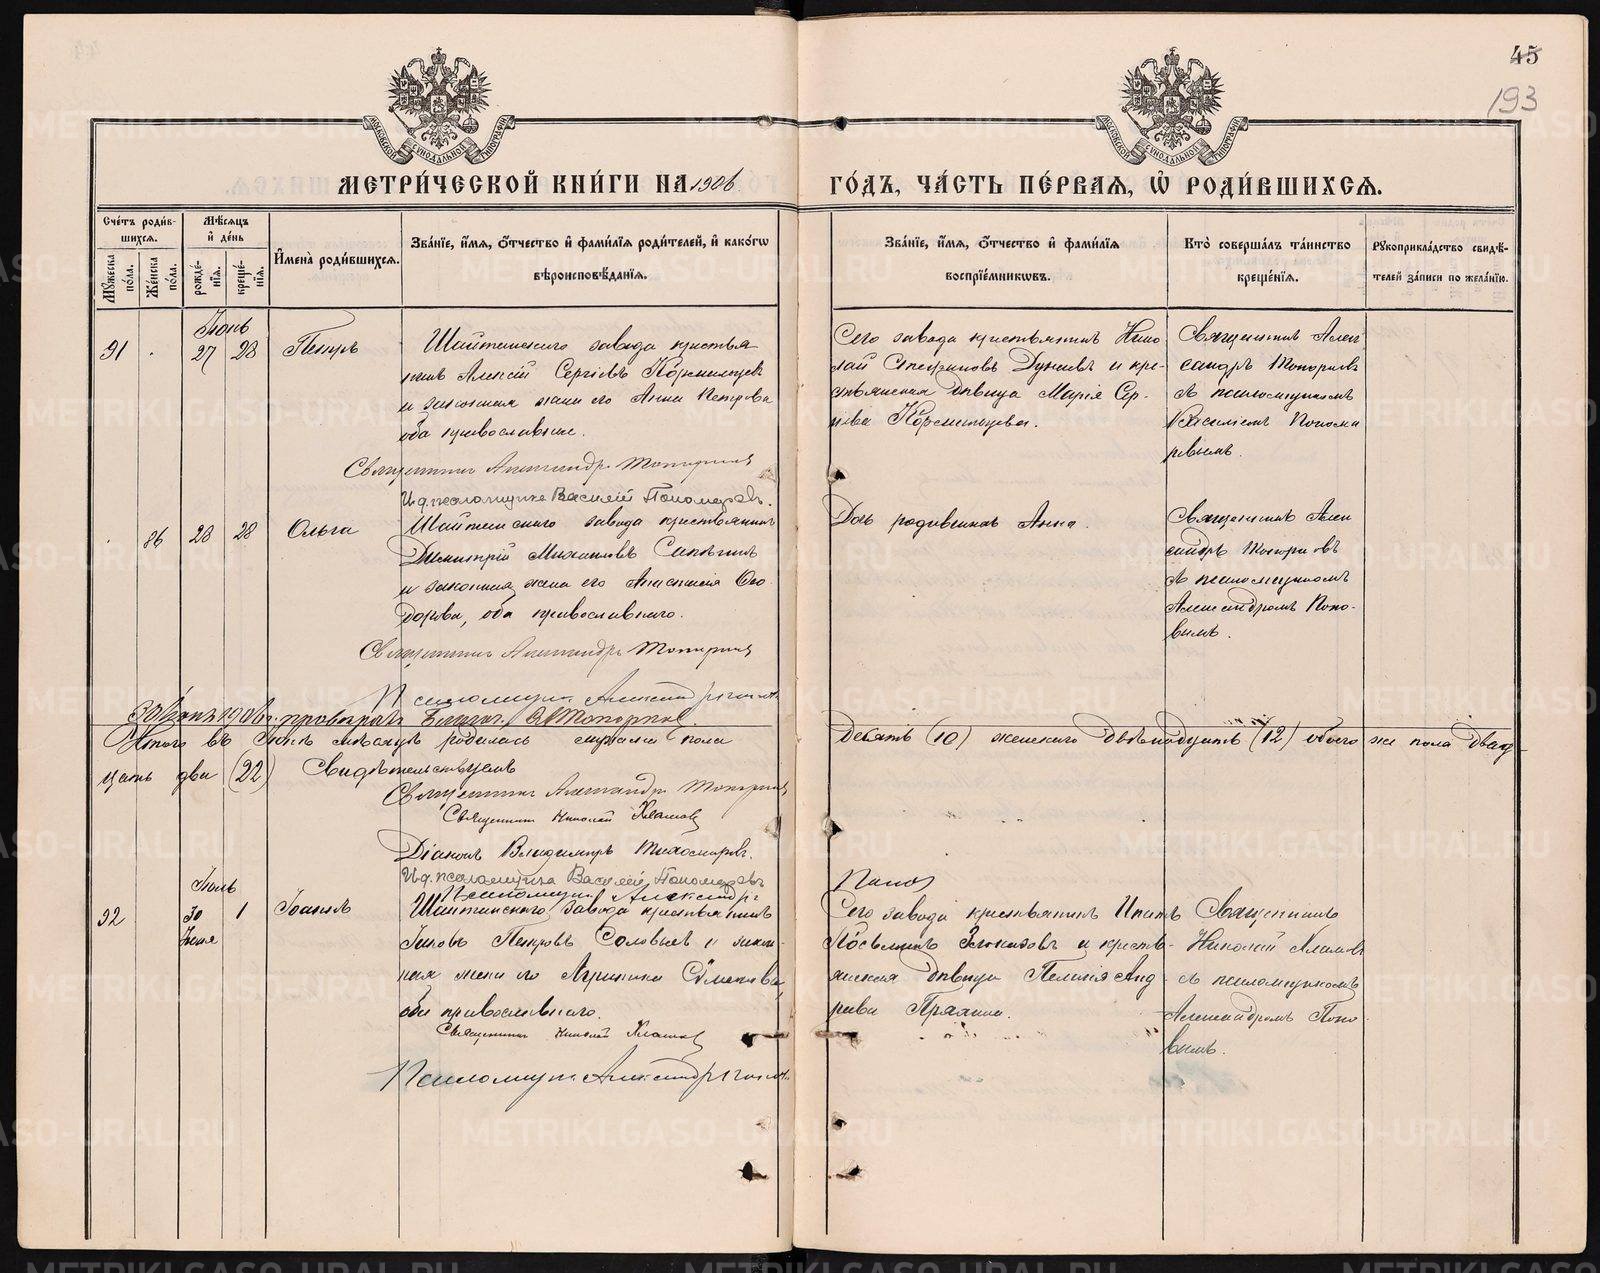 45
193
МЕТРИ́ЧЕСКОЙ КНИ́ГИ НА 1906
ГО́ДЪ, ЧА́СТЬ ПЕ́РВАѦ, Ѡ҆ РОДИ́ВШИХСѦ.
Сче́тъ роди́в-
шихсѧ.
Мѣ́сѧцъ
и҆ де́нь
Мꙋ́жеска
по́ла.
Же́нска
по́ла.
рожде́-
нїѧ.
креще́-
нїѧ.
И҆мена̀ роди́вшихсѧ.
Зва́нїе, и҆́мѧ, ѻ҆́тчество и҆ фами́лїѧ роди́телей, и҆ како́гѡ
вѣроисповѣ́данїѧ.
Зва́нїе, и҆́мѧ, ѻ҆́тчество и҆ фами́лїѧ
воспрїе́мникѡвъ.
Кто̀ соверша́лъ та́инство
креще́нїѧ.
Рꙋкоприкла́дство свидѣ́-
телей за́писи по жела́нїю.
Іюнь
91 27 28 Петръ
Шайтанскаго завода крестья
нинъ Алексій Сергіевъ Кормильцевъ
и законная жена его Анна Петрова
оба православные.
Священникъ Александръ Топорковъ
И.д. псаломщика Василій Пономаревъ.
Сего завода крестьянинъ Нико
лай Стефановъ Дунаевъ и кре-
стьянская дѣвица Марія Сер-
гіева Кормильцева.
Священникъ Алек
сандръ Топорковъ
съ псаломщикомъ
Василіемъ Понома
ревымъ.
86 28 28 Ольга
Шайтанскаго завода крестьянинъ
Димитрій Михаиловъ
и законная жена его Анастасія Ѳео
дорова, оба православнаго.
Священникъ Александръ Топорковъ
Псаломщикъ Александръ Поповъ
Дочь родившихъ Анна.
Священникъ Алек
сандръ Топорковъ
съ псаломщикомъ
Александромъ Попо-
вымъ.
Итого въ Іюнѣ мѣсяцѣ родилось мужска пола
десять (10) женскаго двѣнадцать (12) обоего же пола двад-
цать два (22) Свидѣтельствуемъ
Священникъ Александръ Топорковъ
Священникъ Николай Хламовъ
Діаконъ Владимиръ Тихомировъ.
И.д. псаломщика Василій Пономаревъ
Псаломщикъ Александръ
Поповъ
Іюль
92 30 1 Іоаннъ
Іюня
Шайтанскаго завода крестьянинъ
Іаковъ Петровъ Соловьевъ и закон-
ная жена его Агрипина Симеонова,
оба православнаго.
Священникъ Николай Хламовъ
Псаломщикъ Александръ Поповъ
Сего завода крестьянинъ
Злоказовъ и крестья-
янская дѣвица Пелагія Анд-
реева
Священникъ
Николай Хламовъ
съ псаломщикомъ
Александромъ Попо-
вымъ.
METRIKI.GASO-URAL.RU